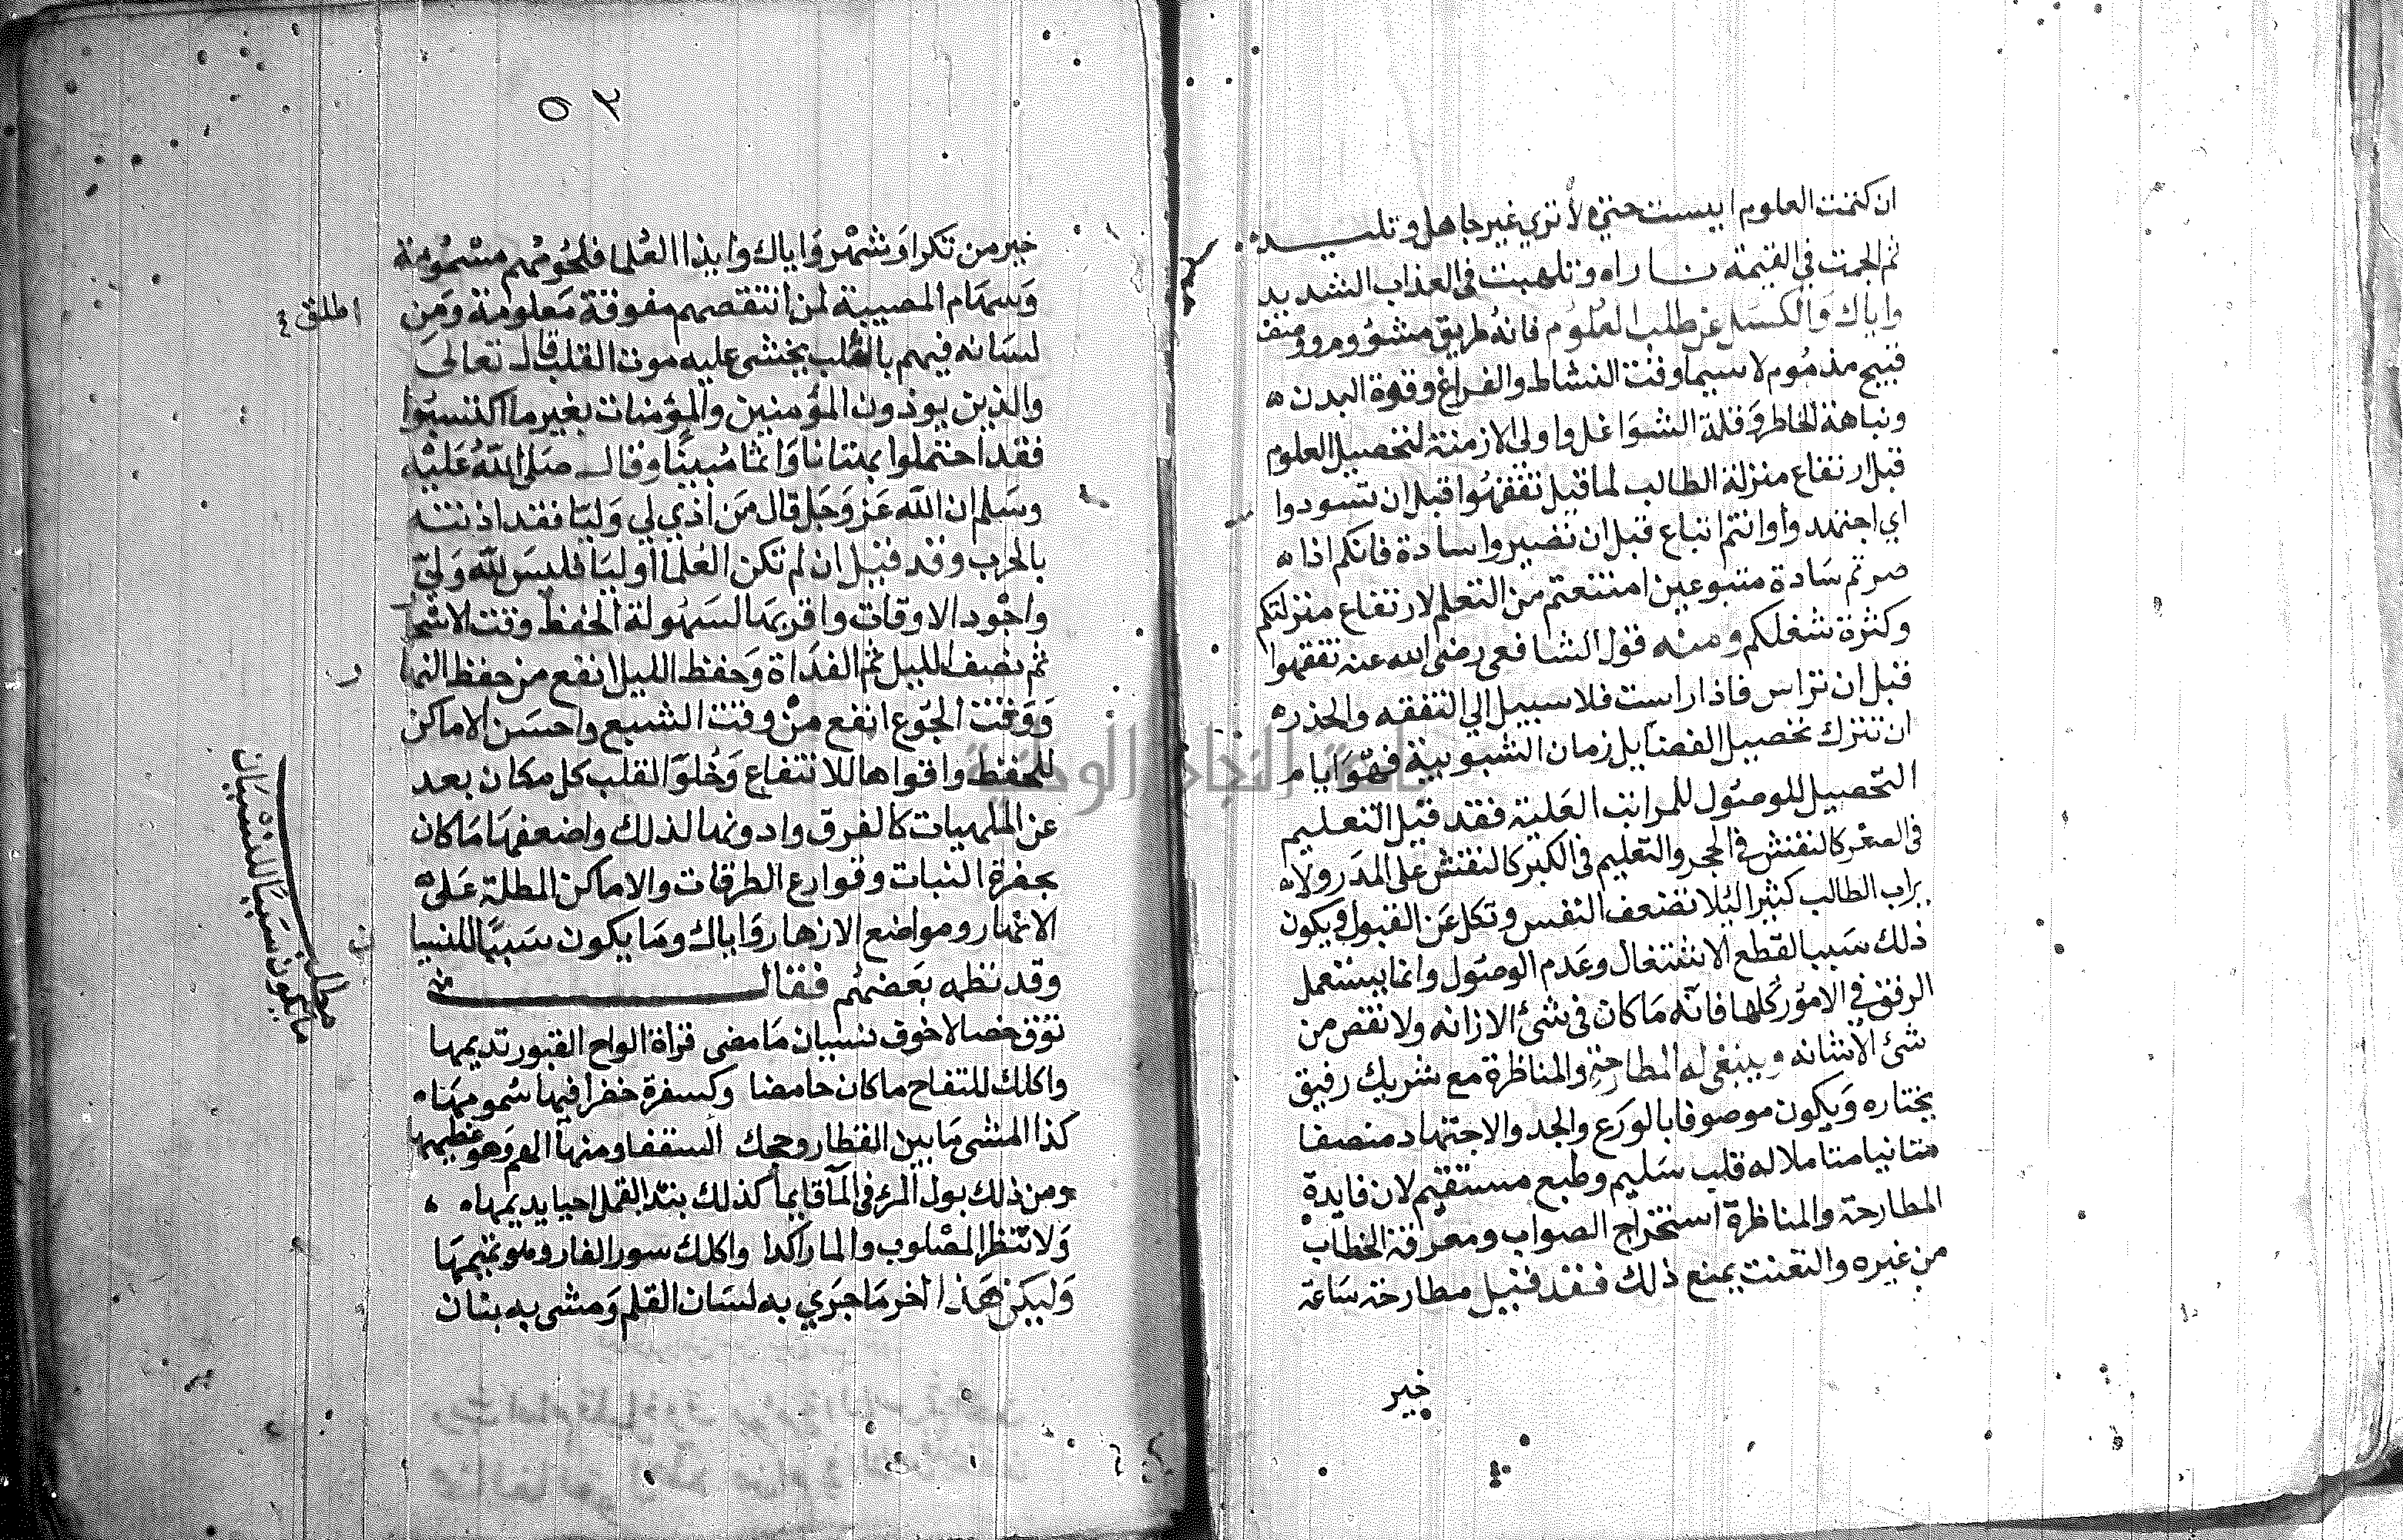 ان كتمت العلوم ابيست حتي لا تري غير جاهل وتليد
ثم الجمت في القيمة نارا وتلهبت في العذاب الشديد
واياك والكسل عن طلب العلوم فانه طريق مشووم
قبيح مذموم لا سيما وقت النشاط والفراغ وقوة البدن
ونباهة الخاطر وقلة الشواغل واولي الازمنة لتحصيل العلوم
قبل ارتفاع منزلة الطالب لما قيل تفقهوا قبل ان تسودوا
اي اجتهدوا وانتم اتباع قبل ان تصيروا سادة فانكم اذا
صرتم سادة متبوعين امتنعتم من التعلم لارتفاع منزلتكم
وكثرة شغلكم ومنه قول الشافعي رضي الله عنه تفقهوا
قبل ان تراس فاذا راست فلا سبيل الي التفقه والحذر
ان تترك تحصيل الفضايل زمان الشبوبية فهو ايام
التحصيل للوصول للمراتب العلية فقد قيل التعليم
في الصغر كالنقش في الحجر والتعليم في الكبر كالنقش علي المدر ولا
يراب الطالب كثيرا ليلا تضعف النفس وتكل عن القبول ويكون
ذلك سببا لقطع الاشتغال وعدم الوصول وانما يستعمل
الرفق في الامور كلها فانه ما كان في شئ الا زانه ولا نقص من
شئ الا شانه وينبغي له المطارحة والمناظرة مع شريك رفيق
يختاره ويكون موصوفا بالورع والجد والاجتهاد منصفا
متانيا متاملا له قلب سليم وطبع مستقيم لان فايدة
المطارحة والمناظرة استخراج الصواب ومعرفة الخطاب
من غيره والتعنت يمنع ذلك فقد قيل مطارحة ساعة
خير
٥٣
خير من تكرار شهر واياك وايذا العلما فلحومهم مسمومة
وسهام المصيبة لمن انتقصهم مفوقة معلومة ومن
اطلق
لسانه فيهم بالثلب يخشي عليه موت القلب قال تعالي
والذين يوذون المؤمنين والمؤمنات بغير ما اكتسبوا
فقد احتملوا بهتانا واثما مبينا وقال صلي الله عليه
وسلم ان الله عز وجل قال من اذي لي وليا فقد اذنته
بالحرب وقد قيل ان لم تكن العلما اوليا فليس لله ولي
واجود الاوقات واقربها لسهولة الحفظ وقت الاسحا
ر
ثم نصف الليل ثم الغداة وحفظ الليل انفع من حفظ النها
ووقت الجوع انفع من وقت الشبع واحسن الاماكن
للحفظ واقواها للانتفاع وخلو القلب كل مكان بعد
عن الملهيات كالغرق وادونها لذلك واضعفها ما كان
بحفرة النبات وقوارع الطرقات والاماكن المطلة علي
الانهار ومواضع الازهار واياك وما يكون سببا للنسيا
ن
مطلب
ما يكون سببا للنسيان
وقد نظمه بعضهم فقال
توق خصالا خوف نسيان ما مضي قراة الواح القبور تديمها
واكلك للتفاح ما كان حامضا وكسفرة خضرا فيها سمومها
كذا المشي ما بين القطار وحجمك القفا ومنها الهم وهو عظيمها
ومن ذلك بول المرء في الما قايما كذلك نبذ القمل احيا يديمها
ولا تنظر المصلوب والما راكدا واكلك سور الفار وهو تميمها
وليكن هذا اخر ما جري به لسان القلم ومشي به بنان